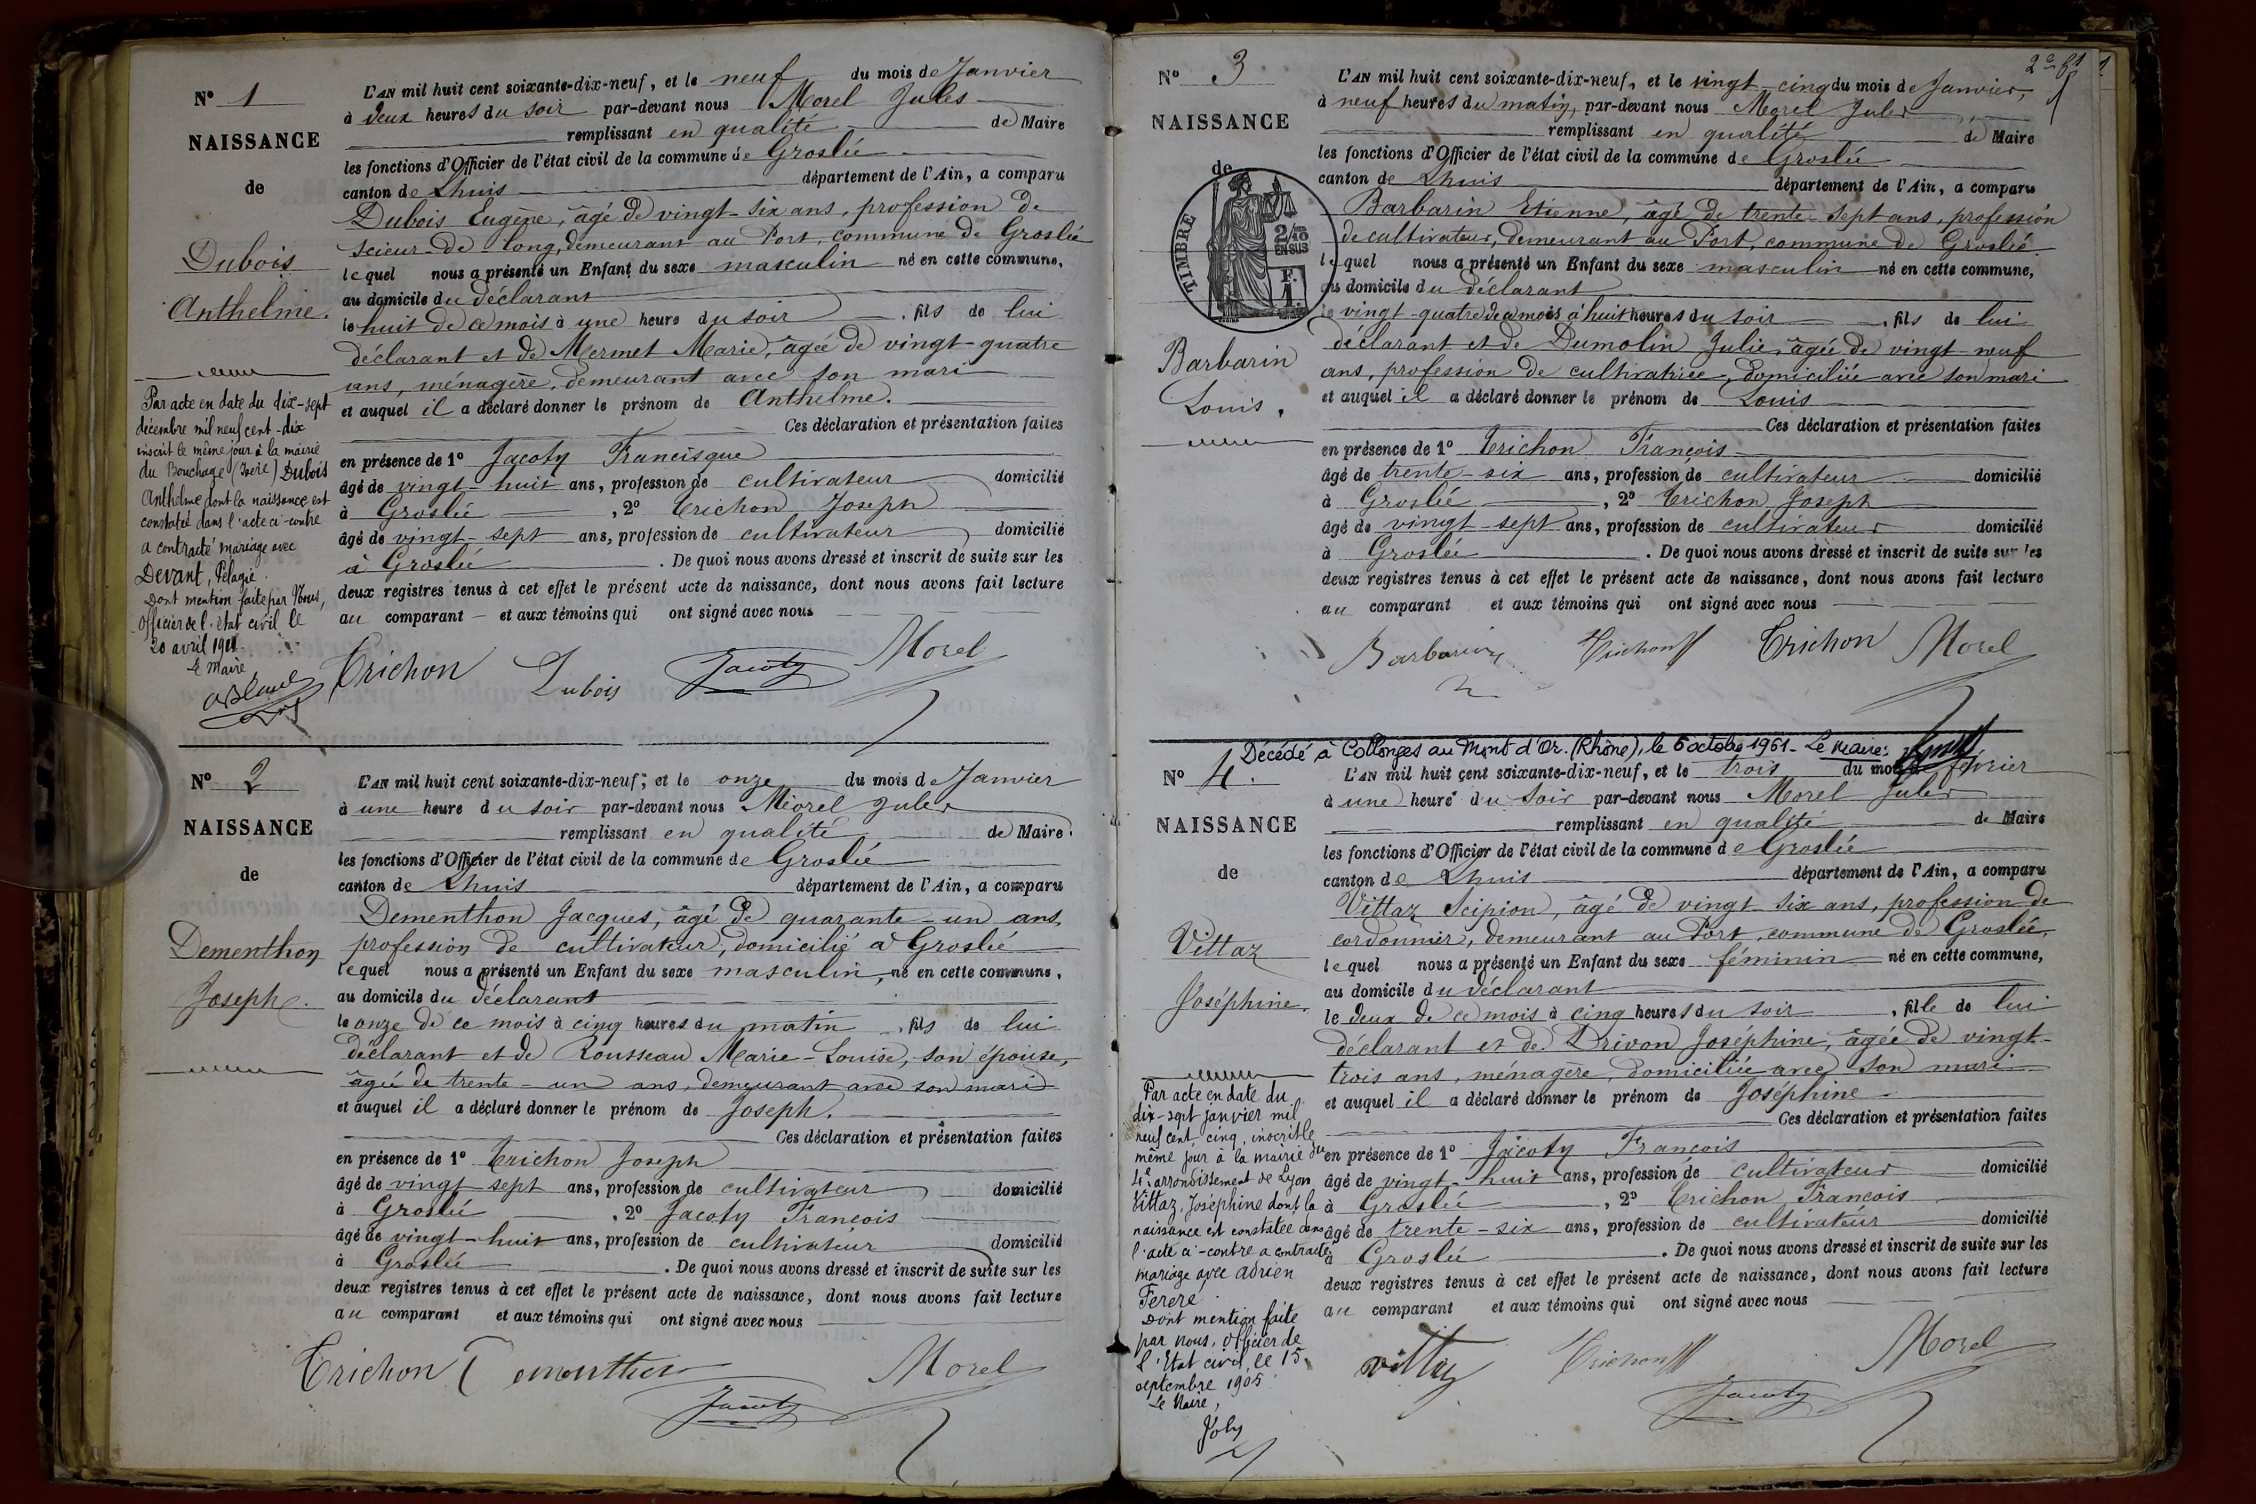 N° 1
NAISSANCE
de
Dubois
Anthelme.
Par acte en date du dix-sept
décembre mil neuf cent-dix
inscrit le même jour à la mairie
du Bouchage (Isère) Dubois
Anthelme dont la naissance est
constatée dans l'acte ci-contre
a contracté mariage avec
Devant, Pélagie.
Dont mention faite par Nous,
officier de l'état civil le
20 avril 1911.
Le Maire
L'AN mil huit cent soixante-dix-neuf, et le neuf du mois de Janvier
à deux heures du soir par-devant nous Morel Jules
remplissant en qualité de Maire
les fonctions d'Officier de l'état civil de la commune de Groslée
canton de Lhuis département de l'Ain, a comparu
Dubois Eugène, âgé de vingt-six ans, profession de
scieur de long, demeurant au Port, commune de Groslée
lequel nous a présenté un Enfant du sexe masculin né en cette commune,
au domicile du déclarant
le huit de ce mois à une heure du soir, fils de lui
déclarant et de Mermet Marie, âgée de vingt-quatre
ans, ménagère, demeurant avec son mari
et auquel il a déclaré donner le prénom de Anthelme.
Ces déclaration et présentation faites
en présence de 1° Jacoty Francisque
âgé de vingt-huit ans, profession de cultivateur domicilié
à Groslée, 2° Trichon Joseph
âgé de vingt-sept ans, profession de cultivateur domicilié
à Groslée. De quoi nous avons dressé et inscrit de suite sur les
deux registres tenus à cet effet le présent acte de naissance, dont nous avons fait lecture
au comparant et aux témoins qui ont signé avec nous
Trichon Dubois Jacoty Morel
N° 2
NAISSANCE
de
Dementhon
Joseph.
L'AN mil huit cent soixante-dix-neuf, et le onze du mois de Janvier
à une heure du soir par-devant nous Morel Jules
remplissant en qualité de Maire
les fonctions d'Officier de l'état civil de la commune de Groslée
canton de Lhuis département de l'Ain, a comparu
Dementhon Jacques, âgé de quarante-un ans,
profession de cultivateur, domicilié à Groslée
lequel nous a présenté un Enfant du sexe masculin, né en cette commune,
au domicile du déclarant
le onze de ce mois à cinq heures du matin, fils de lui
déclarant et de Rousseau Marie-Louise, son épouse,
âgée de trente-un ans, demeurant avec son mari
et auquel il a déclaré donner le prénom de Joseph.
Ces déclaration et présentation faites
en présence de 1° Trichon Joseph
âgé de vingt sept ans, profession de cultivateur domicilié
à Groslée, 2° Jacoty François
âgé de vingt-huit ans, profession de cultivateur domicilié
à Groslée. De quoi nous avons dressé et inscrit de suite sur les
deux registres tenus à cet effet le présent acte de naissance, dont nous avons fait lecture
au comparant et aux témoins qui ont signé avec nous
Trichon Dementhon Jacoty Morel
N° 3
NAISSANCE
de
TIMBRE
2/10 EN SUS
F. 1.
Barbarin
Louis.
L'AN mil huit cent soixante-dix-neuf, et le vingt-cinq du mois de Janvier,
à neuf heures du matin, par-devant nous Morel Jules
remplissant en qualité de Maire
les fonctions d'Officier de l'état civil de la commune de Groslée
canton de Lhuis département de l'Ain, a comparu
Barbarin Etienne, âgé de trente-sept ans, profession
de cultivateur, demeurant au Port, commune de Groslée
lequel nous a présenté un Enfant du sexe masculin né en cette commune,
au domicile du déclarant
le vingt-quatre de ce mois à huit heures du soir, fils de lui
déclarant et de Dumolin Julie, âgée de vingt-neuf
ans, profession de cultivatrice, domiciliée avec son mari
et auquel il a déclaré donner le prénom de Louis
Ces déclaration et présentation faites
en présence de 1° Trichon François
âgé de trente-six ans, profession de cultivateur domicilié
à Groslée, 2° Trichon Joseph
âgé de vingt-sept ans, profession de cultivateur domicilié
à Groslée. De quoi nous avons dressé et inscrit de suite sur les
deux registres tenus à cet effet le présent acte de naissance, dont nous avons fait lecture
au comparant et aux témoins qui ont signé avec nous
Barbarin Trichon Trichon Morel
Décédé à Collonges au Mont d'Or. (Rhône), le 6 octobre 1961 - Le Maire:
N° 4.
NAISSANCE
de
Vittaz
Joséphine.
Par acte en date du
dix-sept janvier mil
neuf cent cinq, inscrit le
même jour à la mairie du
4e arrondissement de Lyon
Vittaz, Joséphine dont la
naissance est constatée dans
l'acte ci-contre a contracté
mariage avec Adrien
Fereré.
Dont mention faite
par nous, officier de
l'Etat civil, le 15
septembre 1905
Le Maire,
Joly
L'AN mil huit cent soixante-dix-neuf, et le trois du mois de février
à une heure du soir par-devant nous Morel Jules
remplissant en qualité de Maire
les fonctions d'Officier de l'état civil de la commune de Groslée
canton de Lhuis département de l'Ain, a comparu
Vittaz Scipion, âgé de vingt six ans, profession de
cordonnier, demeurant au Port, commune de Groslée,
lequel nous a présenté un Enfant du sexe féminin né en cette commune,
au domicile du déclarant
le deux de ce mois à cinq heures du soir, fille de lui
déclarant et de Drivon Joséphine, âgée de vingt-
trois ans, ménagère, domiciliée avec son mari
et auquel il a déclaré donner le prénom de Joséphine
Ces déclaration et présentation faites
en présence de 1° Jacoty François
âgé de vingt-huit ans, profession de cultivateur domicilié
à Groslée, 2° Trichon François
âgé de trente-six ans, profession de cultivateur domicilié
à Groslée. De quoi nous avons dressé et inscrit de suite sur les
deux registres tenus à cet effet le présent acte de naissance, dont nous avons fait lecture
au comparant et aux témoins qui ont signé avec nous
Vittaz Trichon Jacoty Morel